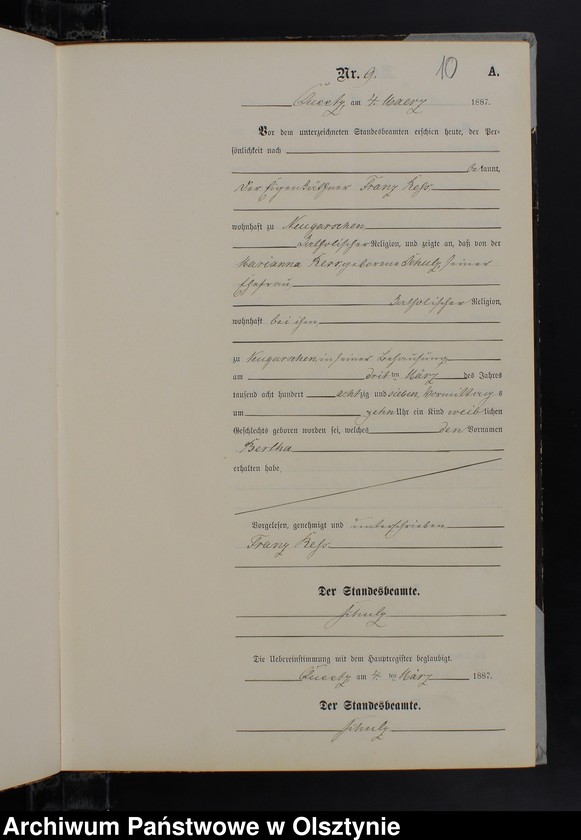 Nr. 9. 10 A.
Queetz am 4. Maerz 1887.
Vor dem unterzeichneten Standesbeamten erschien heute, der Per-
sönlichkeit nach
be kannt,
der Eigenkäthner Franz Kess
wohnhaft zu Neugarschen
katholischer Religion, und zeigte an, daß von der
Marianna Kess, geborene Schulz, seiner
Ehefrau
katholischer Religion,
wohnhaft bei ihm
zu Neugarschen, in seiner Behausung
am dritten März des Jahres
tausend acht hundert achtzig und sieben, Vormittags
um zehn Uhr ein Kind weiblichen
Geschlechts geboren worden sei, welches den Vornamen
Bertha
erhalten habe.
Vorgelesen, genehmigt und unterschrieben
Franz Kess.
Der Standesbeamte.
Schulz
Die Uebereinstimmung mit dem Hauptregister beglaubigt.
Queetz am 4. ten März 1887.
Der Standesbeamte.
Schulz
Archiwum Państwowe w Olsztynie